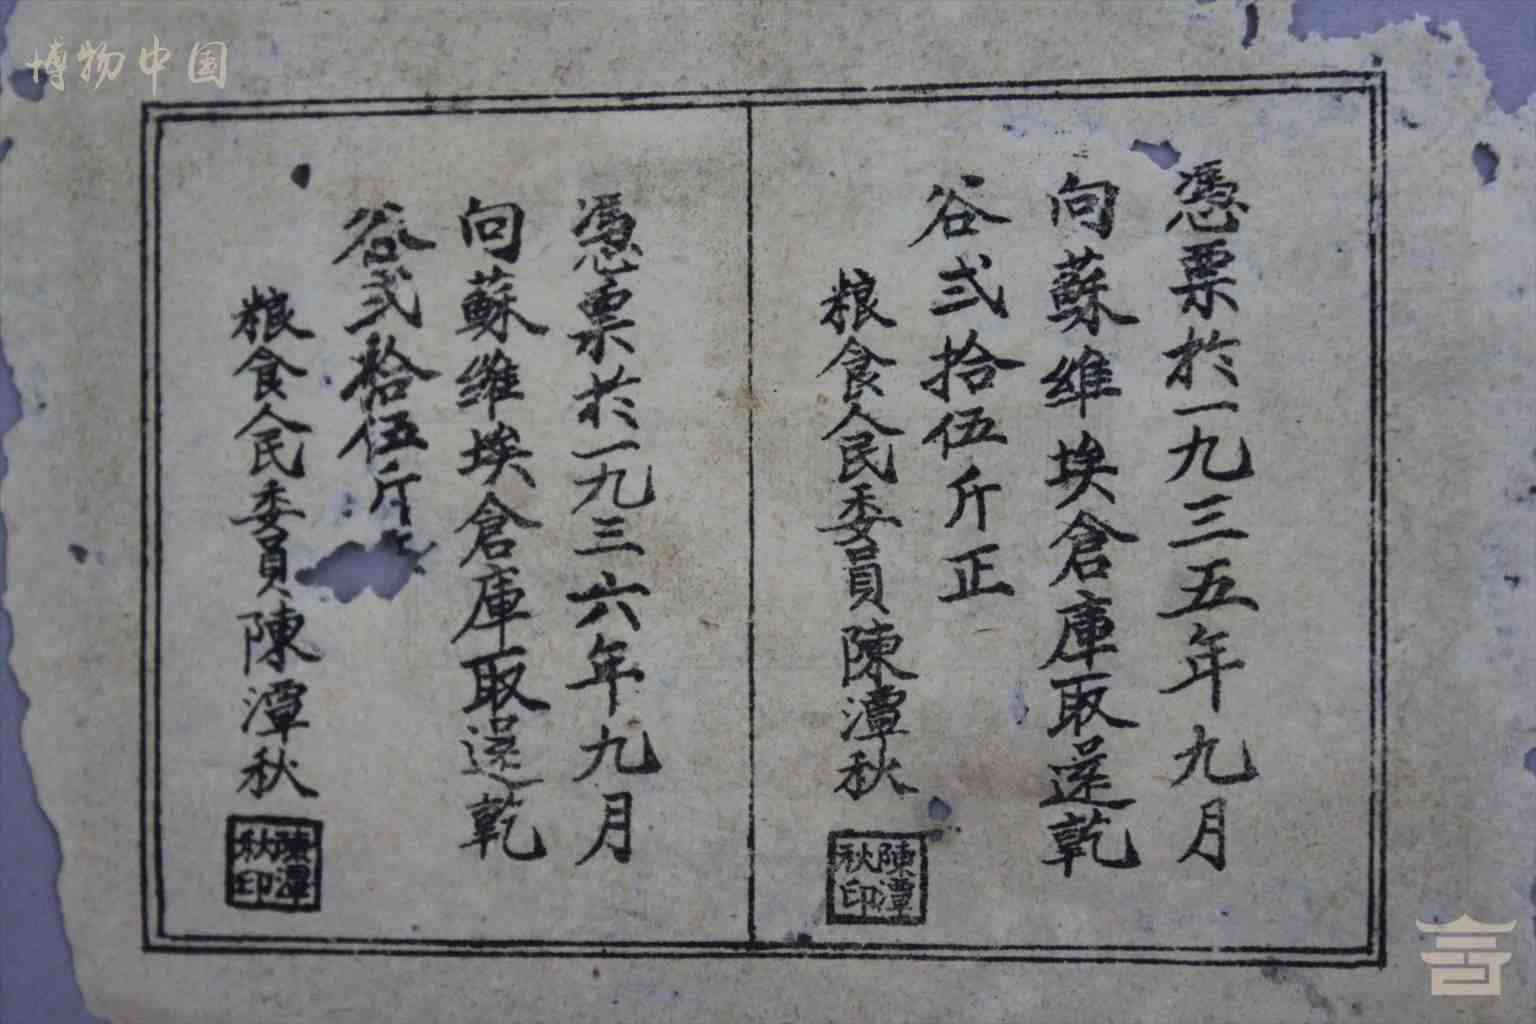 博物中国
憑票於一九三五年九月
向蘇维埃倉庫取還乾
谷弍拾伍斤正
粮食人民委員陳潭秋
陳潭秋印
憑票於一九三六年九月
向蘇维埃倉庫取還乾
谷弍拾伍斤
粮食人民委員陳潭秋
陳潭秋印